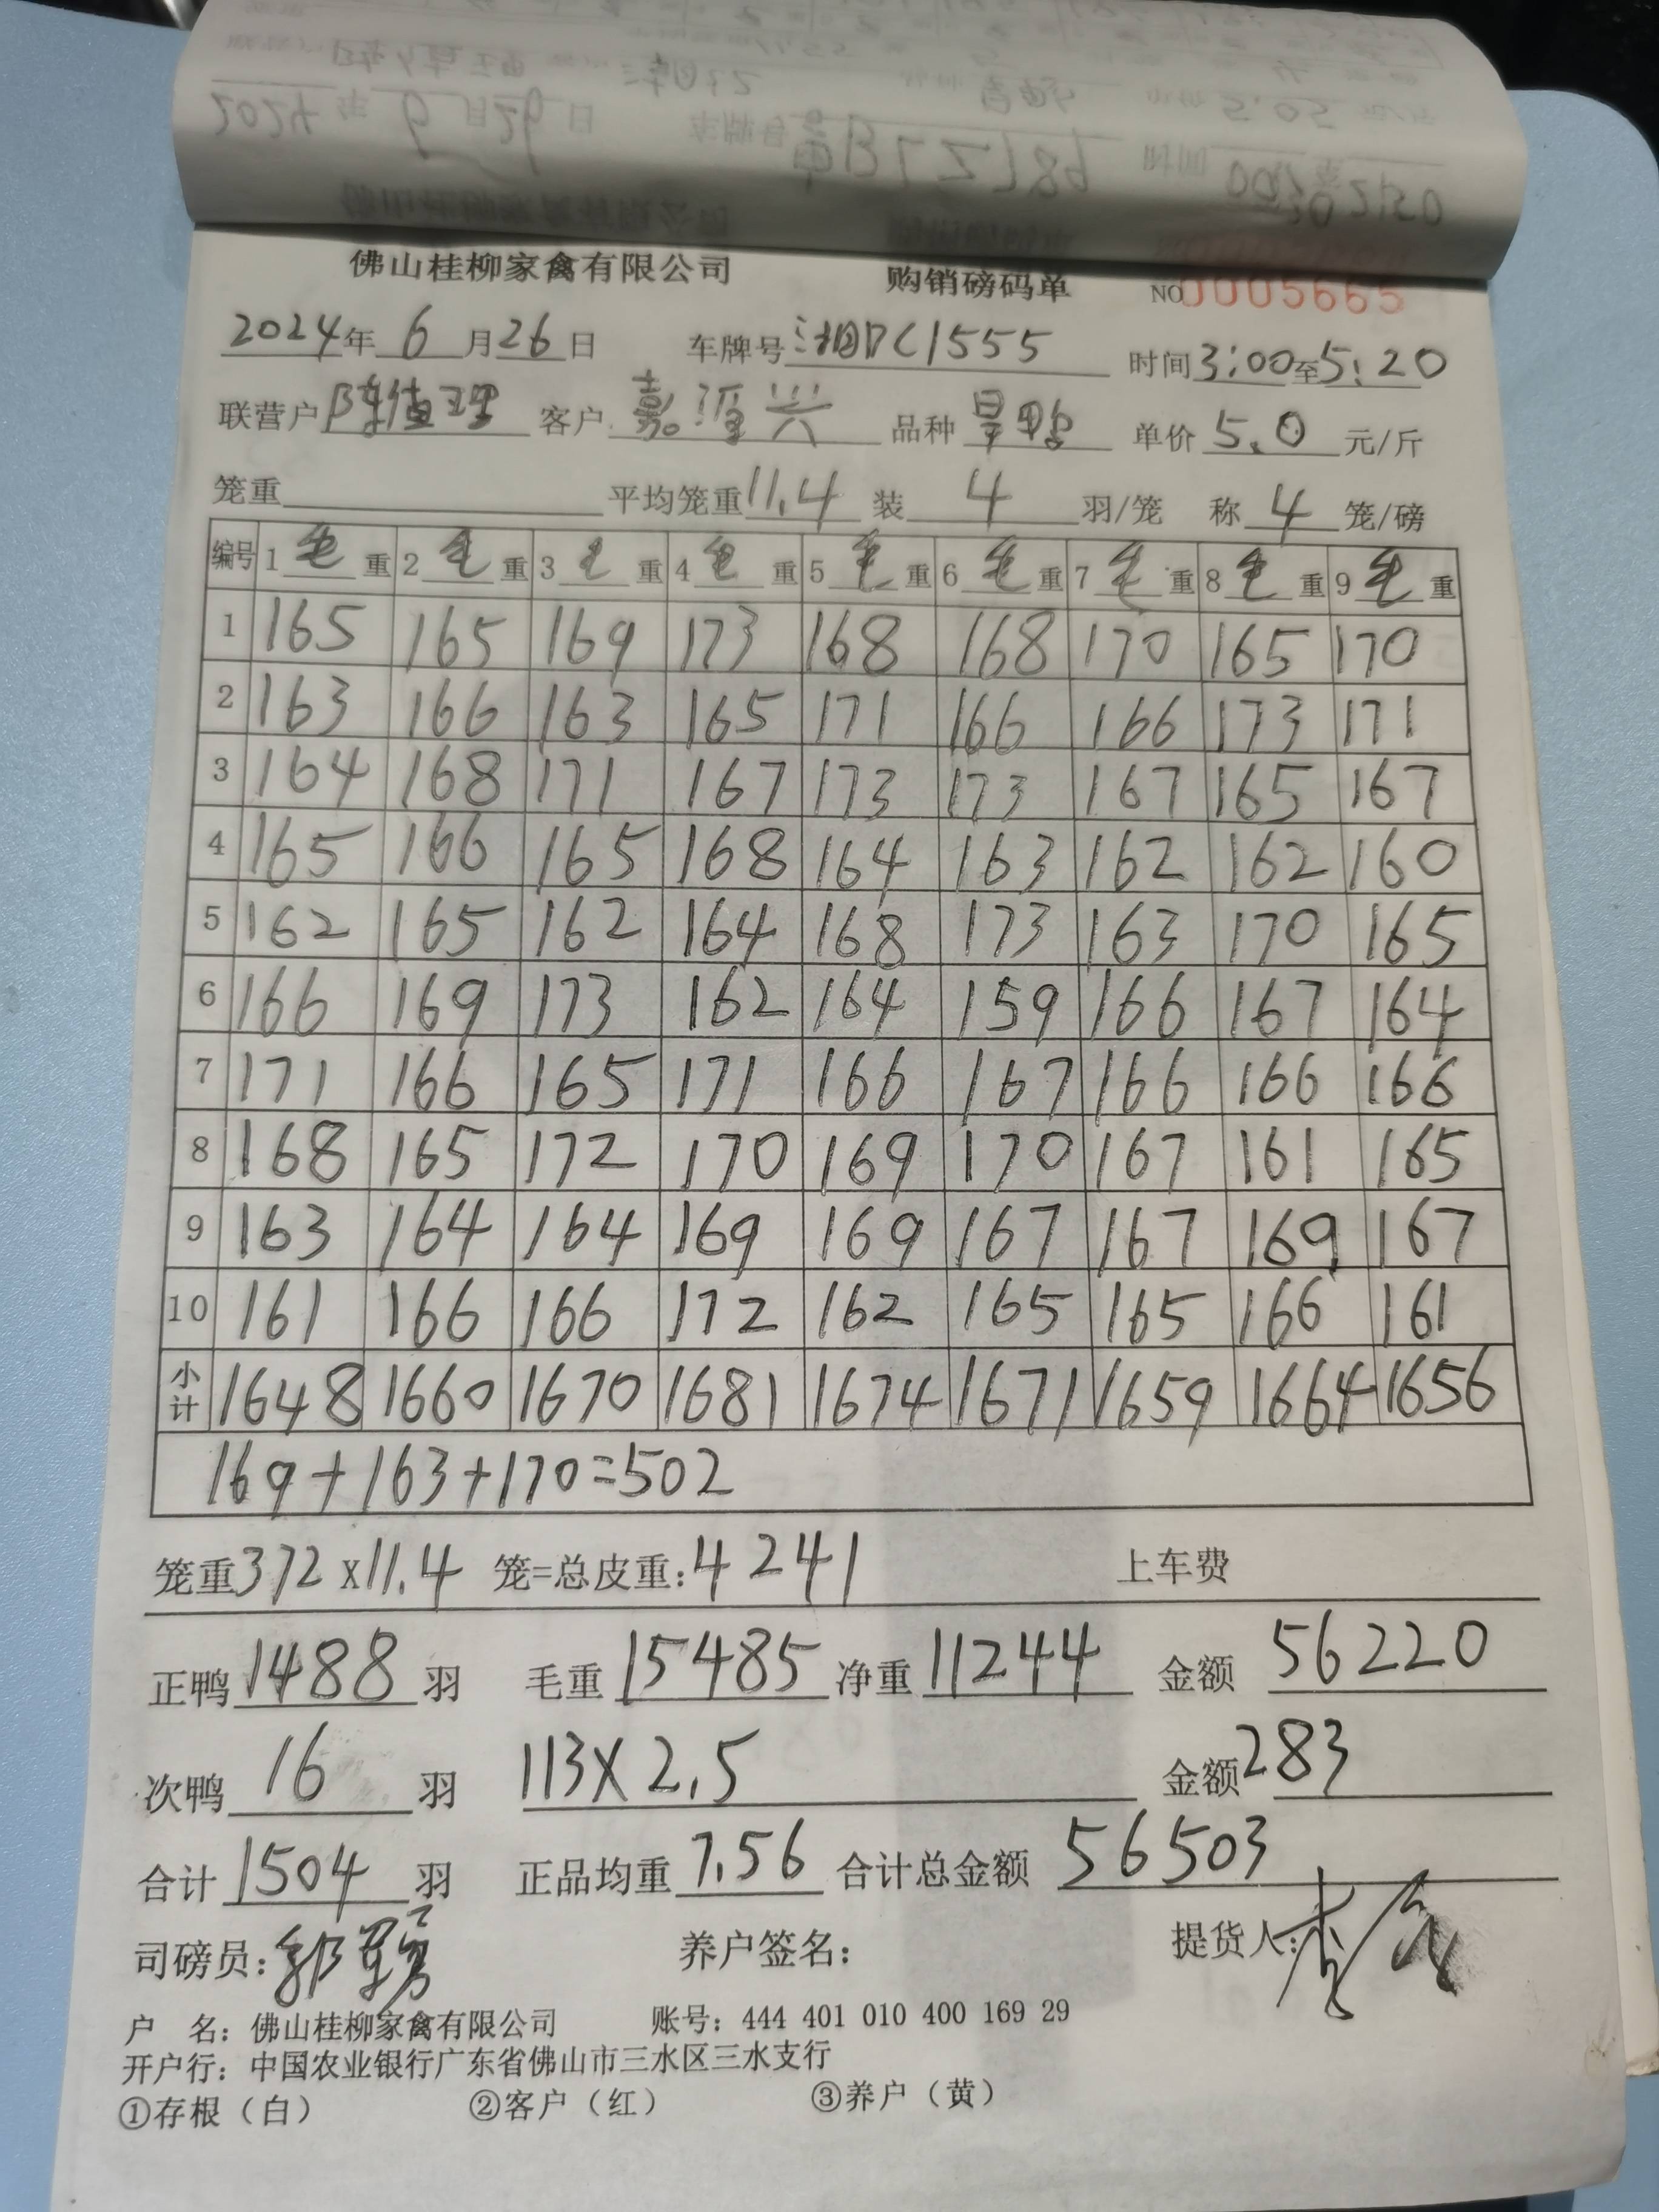 佛山桂柳家禽有限公司 购销磅码单 NO 0005665
2024年 6 月 26 日 车牌号 湘DC1555 时间 3:00 至 5:20
联营户 陈值理 客户 嘉滙兴 品种 旱鸭 单价 5.0 元/斤
笼重 平均笼重 11.4 装 4 羽/笼 称 4 笼/磅
编号 1 毛 重 2 毛 重 3 毛 重 4 毛 重 5 毛 重 6 毛 重 7 毛 重 8 毛 重 9 毛 重
1 165 165 169 173 168 168 170 165 170
2 163 166 163 165 171 166 166 173 171
3 164 168 171 167 173 173 167 165 167
4 165 166 165 168 164 163 162 162 160
5 162 165 162 164 168 173 163 170 165
6 166 169 173 162 164 159 166 167 164
7 171 166 165 171 166 167 166 166 166
8 168 165 172 170 169 170 167 161 165
9 163 164 164 169 169 167 167 169 167
10 161 166 166 172 162 165 165 166 161
小计 1648 1660 1670 1681 1674 1671 1659 1664 1656
169+163+170=502
笼重 372 x 11.4 笼=总皮重: 4241 上车费
正鸭 1488 羽 毛重 15485 净重 11244 金额 56220
次鸭 16 羽 113X2.5 金额 283
合计 1504 羽 正品均重 7.56 合计总金额 56503
司磅员: 养户签名: 提货人:
户 名: 佛山桂柳家禽有限公司 账号: 444 401 010 400 169 29
开户行: 中国农业银行广东省佛山市三水区三水支行
①存根（白） ②客户（红） ③养户（黄）